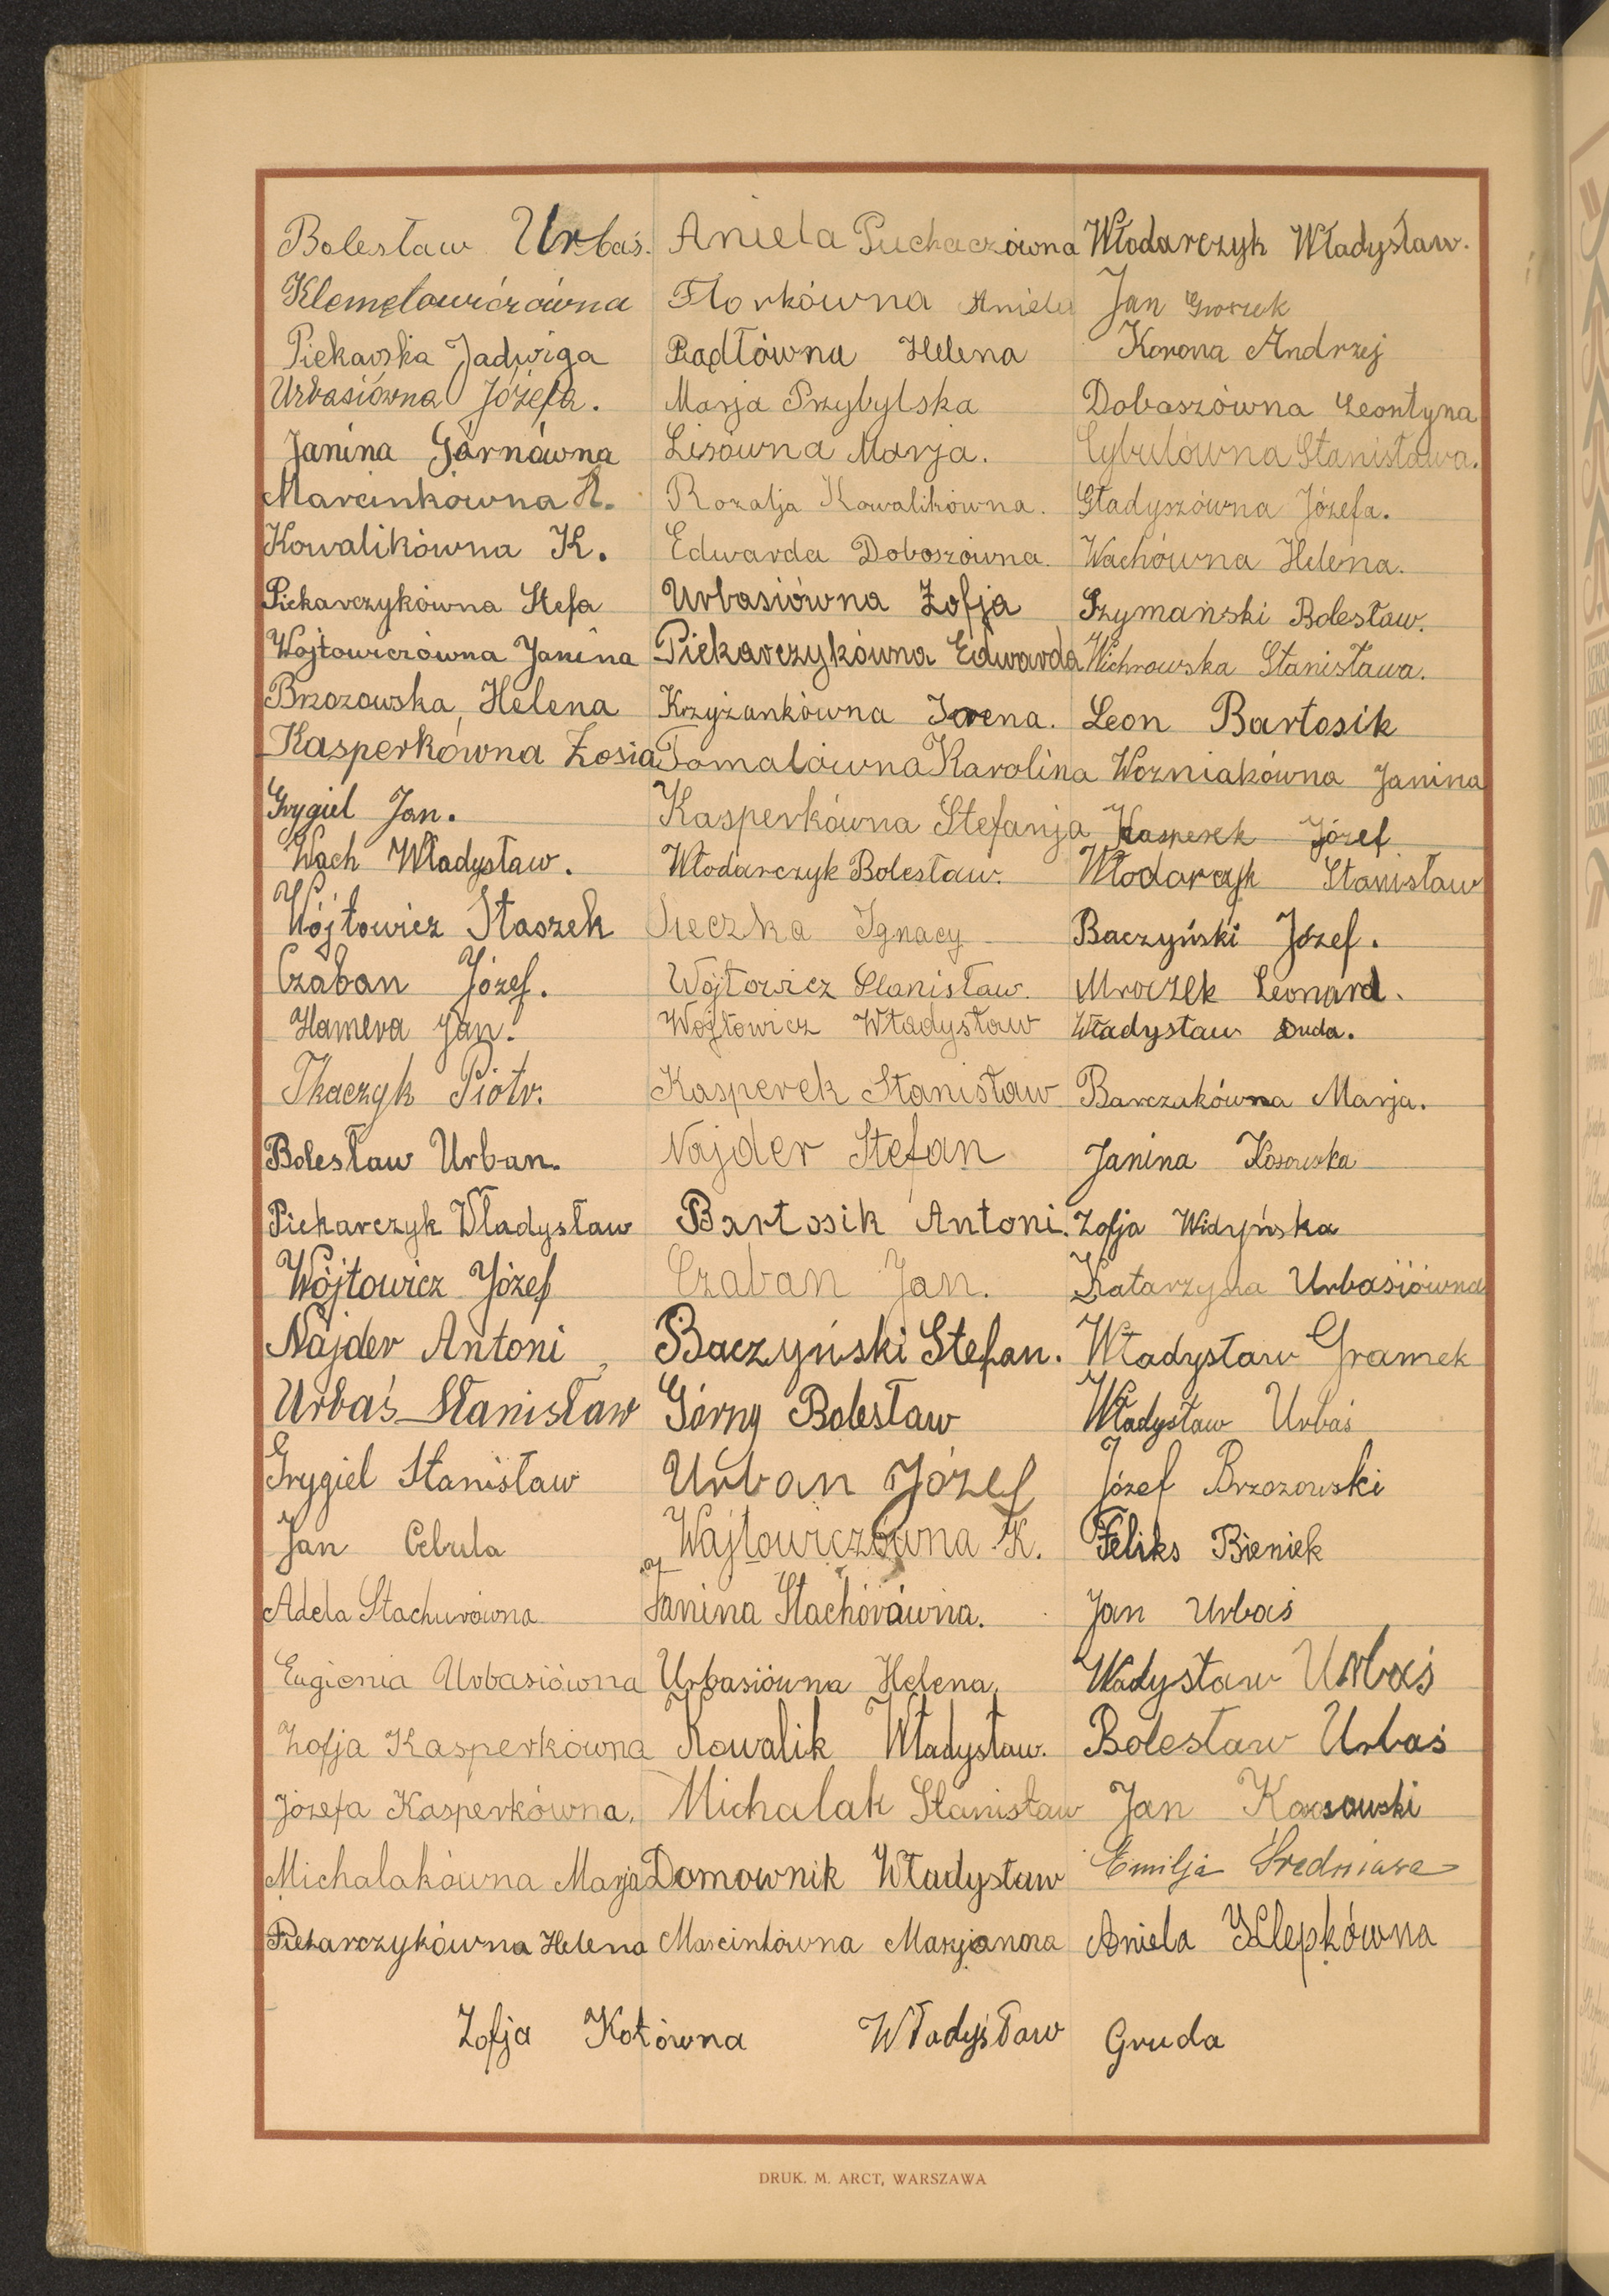 Bolesław Urbaś. Aniela Puchaczówna Włodarczyk Władysław.
Klemętowiczówna Florkówna Aniela Jan Gworek
Piekarska Jadwiga Rądłówna Helena Korona Andrzej
Urbasiówna Józefa. Marja Przybylska Doboszówna Leontyna
Janina Górnówna Lisówna Marja. Cybulówna Stanisława.
Marcinkówna H. Rozalja Kowalikówna. Gładyszówna Józefa.
Kowalikówna K. Edwarda Doboszówna. Wachówna Helena.
Piekarczykówna Stefa Urbasiówna Zofja Szymański Bolesław.
Wojtowiczówna Janina Piekarczykówna Edwarda Wichrowska Stanisława.
Brzozowska, Helena Krzyżankówna Irena. Leon Bartosik
Kasperkówna Zosia Tomalówna Karolina Wozniakówna Janina
Grygiel Jan. Kasperkówna Stefanja Kasperek Józef
Wach Władysław. Włodarczyk Bolesław. Włodarczyk Stanisław
Wójtowicz Staszek Sieczka Ignacy Baczyński Józef.
Czaban Józef. Wójtowicz Stanisław. Mroczek Leonard.
Hamera Jan. Wojtowicz Władysław Władysław Duda.
Tkaczyk Piotr. Kasperek Stanisław Barczakówna Marja.
Bolesław Urban. Najder Stefan Janina Kosowska
Piekarczyk Władysław Bartosik Antoni. Zofja Widyńska
Wójtowicz Józef Czaban Jan. Katarzyna Urbasiówna
Najder Antoni Baczyński Stefan. Władysław Gramek
Urbaś Stanisław Górny Bolesław Władysław Urbaś
Grygiel Stanisław Urban Józef Józef Brzozowski
Jan Cebula Wajtowiczówna K. Feliks Bieniek
Adela Stachurówna Janina Stachórówna. Jan Urbaś
Eugienia Urbasiówna Urbasiówna Helena. Wadysław Urbaś
Zofja Kasperkówna Kowalik Władysław. Bolesław Urbaś
Józefa Kasperkówna. Michalak Stanisław Jan Kossowski
Michalakówna Marja Domownik Władysław Emilja Średniawa
Piekarczykówna Helena Marcinkówna Maryjanna Aniela Klepkówna
Zofja Kotówna Władysław Gruda
DRUK. M. ARCT, WARSZAWA